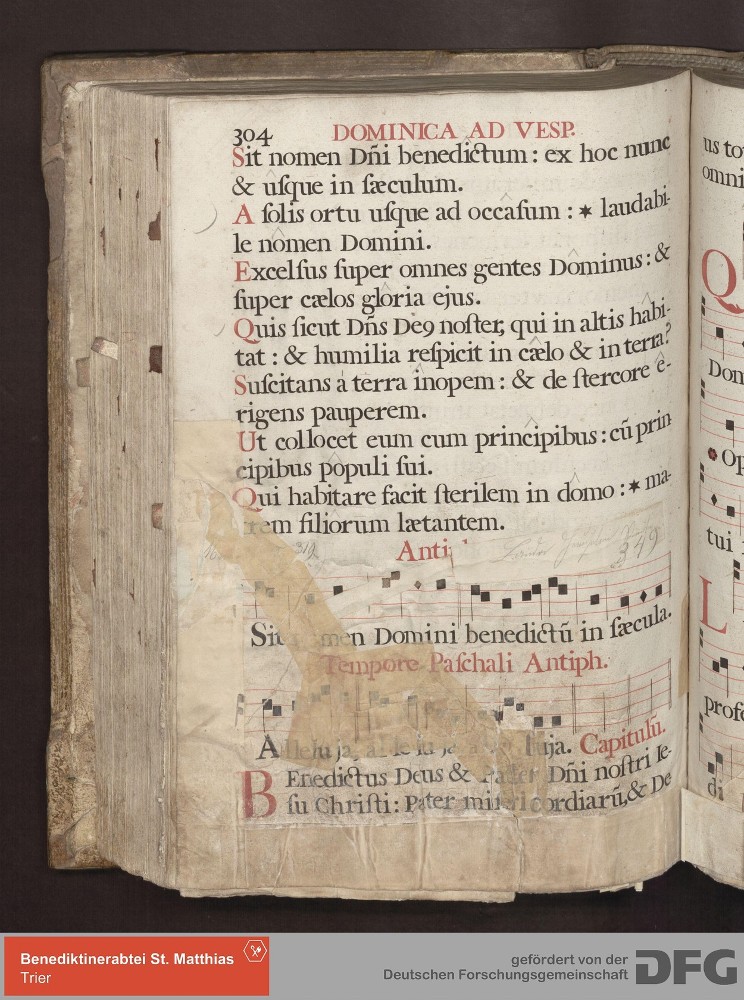 304 DOMINICA AD VESP.
Sit nomen Dñi benedictum : ex hoc nunc
& uſque in ſæculum.
A ſolis ortu uſque ad occâſum : ✶ laudabi-
le nômen Domini.
Excelſus ſuper omnes gentes Dôminus : &
ſuper cælos glôria ejus.
Quis ſicut Dñs Deꝰ noſter, qui in altis hâbi-
tat : & humilia reſpicit in cælo & in terra?
Suſcitans á terra înopem : & de ſtercore ê-
rigens pauperem.
Ut collocet eum cum principibus : cũ prin
cipibus pôpuli ſui.
Qui habitare facit ſterilem in dômo : ✶ ma-
trem filiorum lætantem.
319
Antiph
349
Sit nomen Domini benedictũ in ſæcula.
Tempore Paſchali Antiph.
Alleluja, alleluja, alleluja. Capitulũ.
BEnedictus Deus & Pater Dñi noſtri Ie-
ſu Chriſti : Pater miſericordiarũ, & De
us to
omni
Q
Dom
Op
tui
L
profe
di
Benediktinerabtei St. Matthias
Trier
gefördert von der
Deutschen Forschungsgemeinschaft
DFG